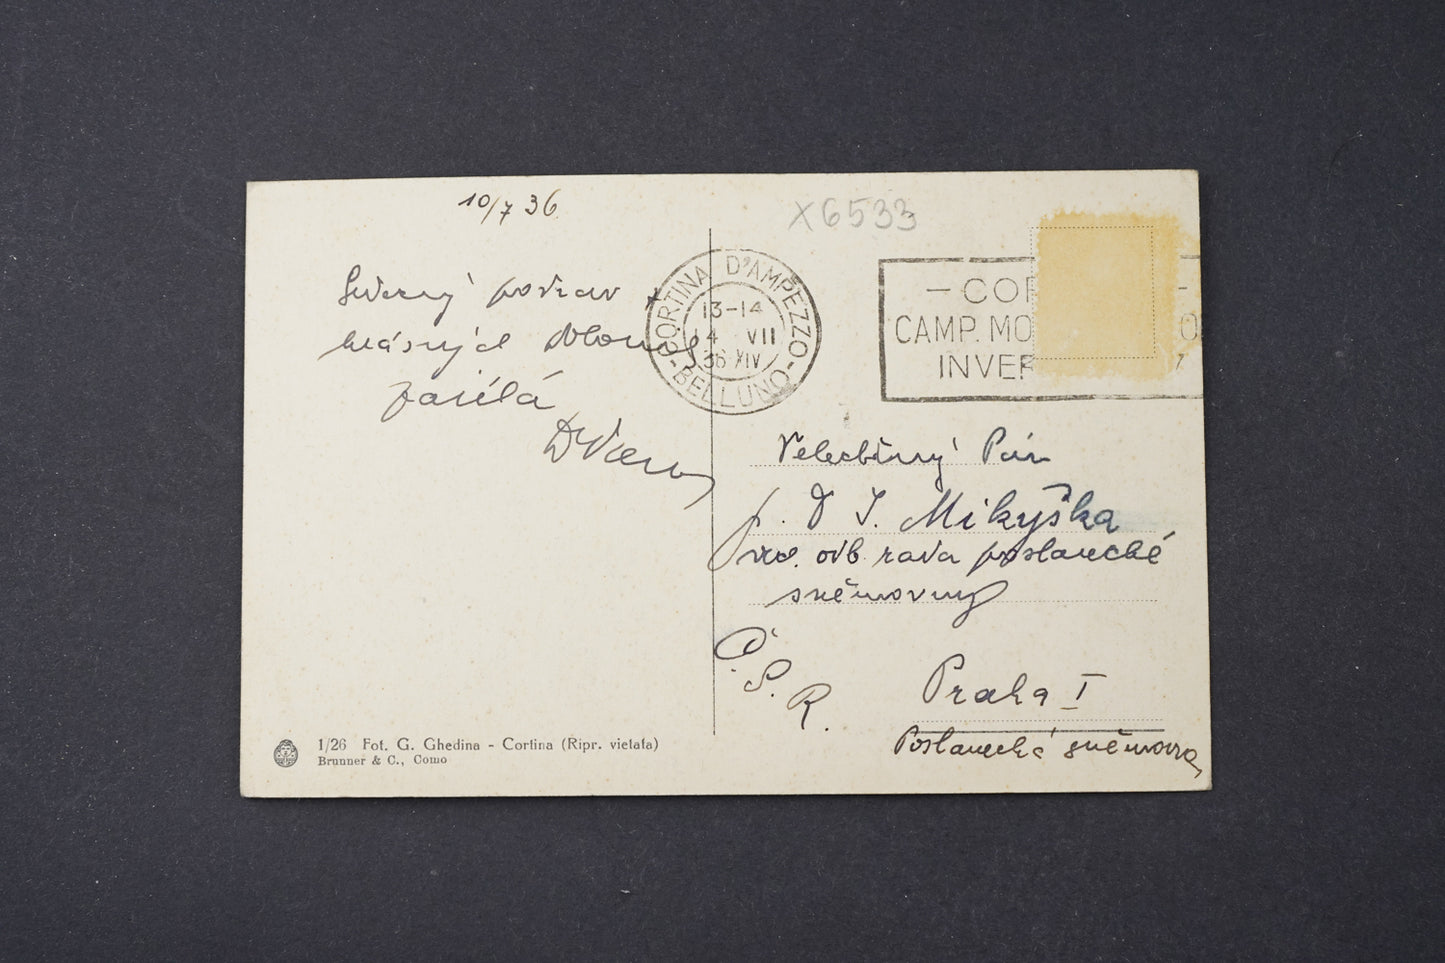 10/7 36
X6533
Srdečný pozdrav z
krásných Dolomit
zasílá
CORTINA D'AMPEZZO
13-14
14 VII
36 XIV
-BELLUNO-
- COR
CAMP. MO O
INVER
Velectěný Pán
p. D J. Mikyška
odb. rada poslanecké
sněmovny
Č.S.R.
Praha I
Poslanecká sněmovna
1/26 Fot. G. Ghedina - Cortina (Ripr. vietata)
Brunner & C., Como